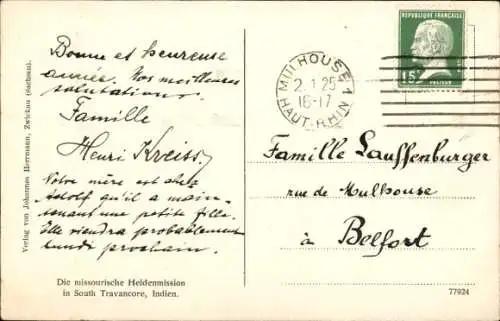 Bonne et heureuse
année. Nos meilleures
salutations.
Famille
Henri Kreiss.
Votre mère est chez
Adolf qu'il a main-
tenant une petite fille.
Elle viendra probablement
lundi prochain.
Die missourische Heidenmission
in South Travancore, Indien.
Verlag von Johannes Herrmann, Zwickau (Sachsen).
MULHOUSE 1
2 1 25
16-17
HAUT-RHIN
REPUBLIQUE FRANÇAISE
15c
PASTEUR
Famille Lauffenburger
rue de Mulhouse
à Belfort
77924